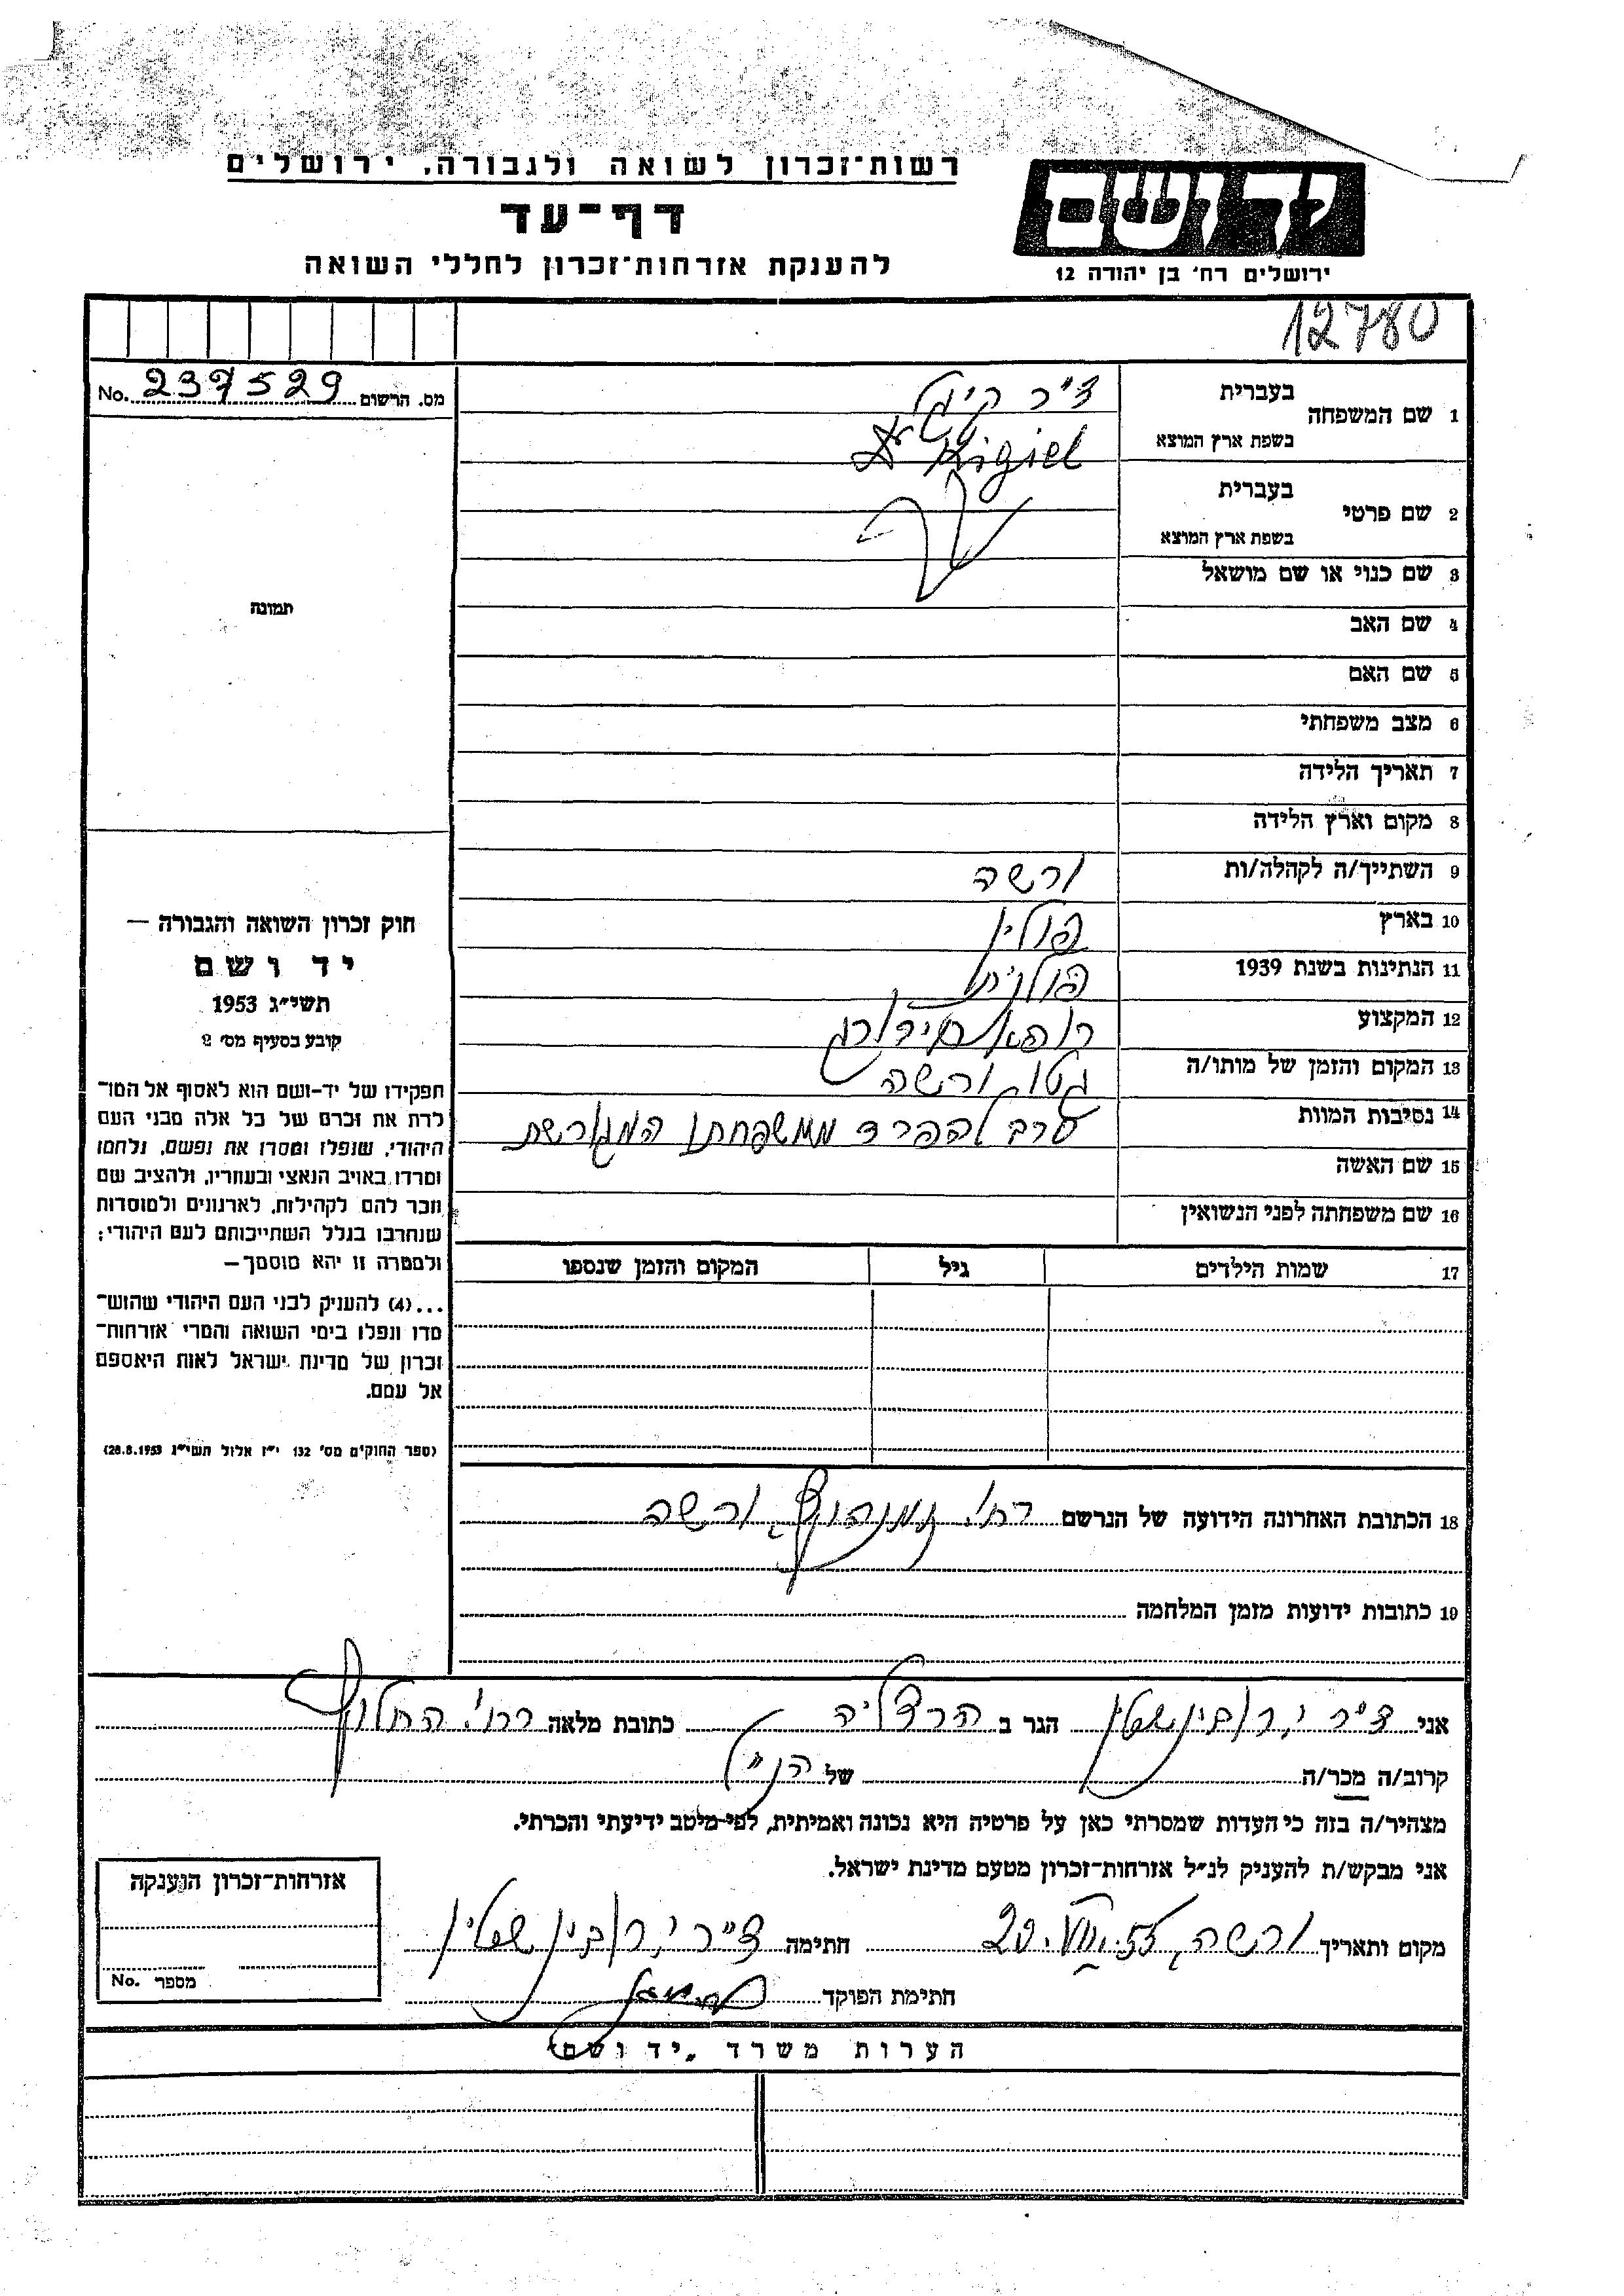 רשות־זכרון לשואה ולגבורה, ירושלים
דף־עד
להענקת אזרחות־זכרון לחללי השואה
ידושם
ירושלים רח׳ בן יהודה 12
12780
מס. הרשום No. 237529
1 שם המשפחה
בעברית ד״ר קיגל
בשפת ארץ המוצא Dr Kigiel
2 שם פרטי
בעברית
בשפת ארץ המוצא
3 שם כנוי או שם מושאל
תמונה
4 שם האב
5 שם האם
6 מצב משפחתי
7 תאריך הלידה
8 מקום וארץ הלידה
9 השתייך/ה לקהלה/ות ורשה
10 בארץ פולין
11 הנתינות בשנת 1939 פולנית
12 המקצוע רופא
13 המקום והזמן של מותו/ה גטו ורשה
14 נסיבות המוות סרב להפרד ממשפחתו המגורשת
15 שם האשה
16 שם משפחתה לפני הנשואין
17 שמות הילדים גיל המקום והזמן שנספו
חוק זכרון השואה והגבורה —
יד ושם
תשי״ג 1953
קובע בסעיף מס׳ 2
תפקידו של יד-ושם הוא לאסוף אל המו־
לדת את זכרם של כל אלה מבני העם
היהודי, שנפלו ומסרו את נפשם, נלחמו
ומרדו באויב הנאצי ובעוזריו, ולהציב שם
וזכר להם לקהילות, לארגונים ולמוסדות
שנחרבו בגלל השתייכותם לעם היהודי;
ולמטרה זו יהא מוסמך—
...(4) להעניק לבני העם היהודי שהוש־
מדו ונפלו בימי השואה והמרי אזרחות־
זכרון של מדינת ישראל לאות היאספם
אל עמם.
(ספר החוקים מס׳ 132 י״ז אלול תשי״ג 28.8.1953)
18 הכתובת האחרונה הידועה של הנרשם רח׳ ורשה
19 כתובות ידועות מזמן המלחמה
אני ד״ר י. רובינשטין הגר ב הרצליה כתובת מלאה רח׳ החלוץ
קרוב/ה מכר/ה של הנ״ל
מצהיר/ה בזה כי העדות שמסרתי כאן על פרטיה היא נכונה ואמיתית, לפי מיטב ידיעתי והכרתי.
אני מבקש/ת להעניק לנ״ל אזרחות־זכרון מטעם מדינת ישראל.
מקום ותאריך ורשה, 20.VIII.55 חתימה ד״ר י. רובינשטין
חתימת הפוקד
אזרחות־זכרון הוענקה
מספר No.
הערות משרד „יד ושם״